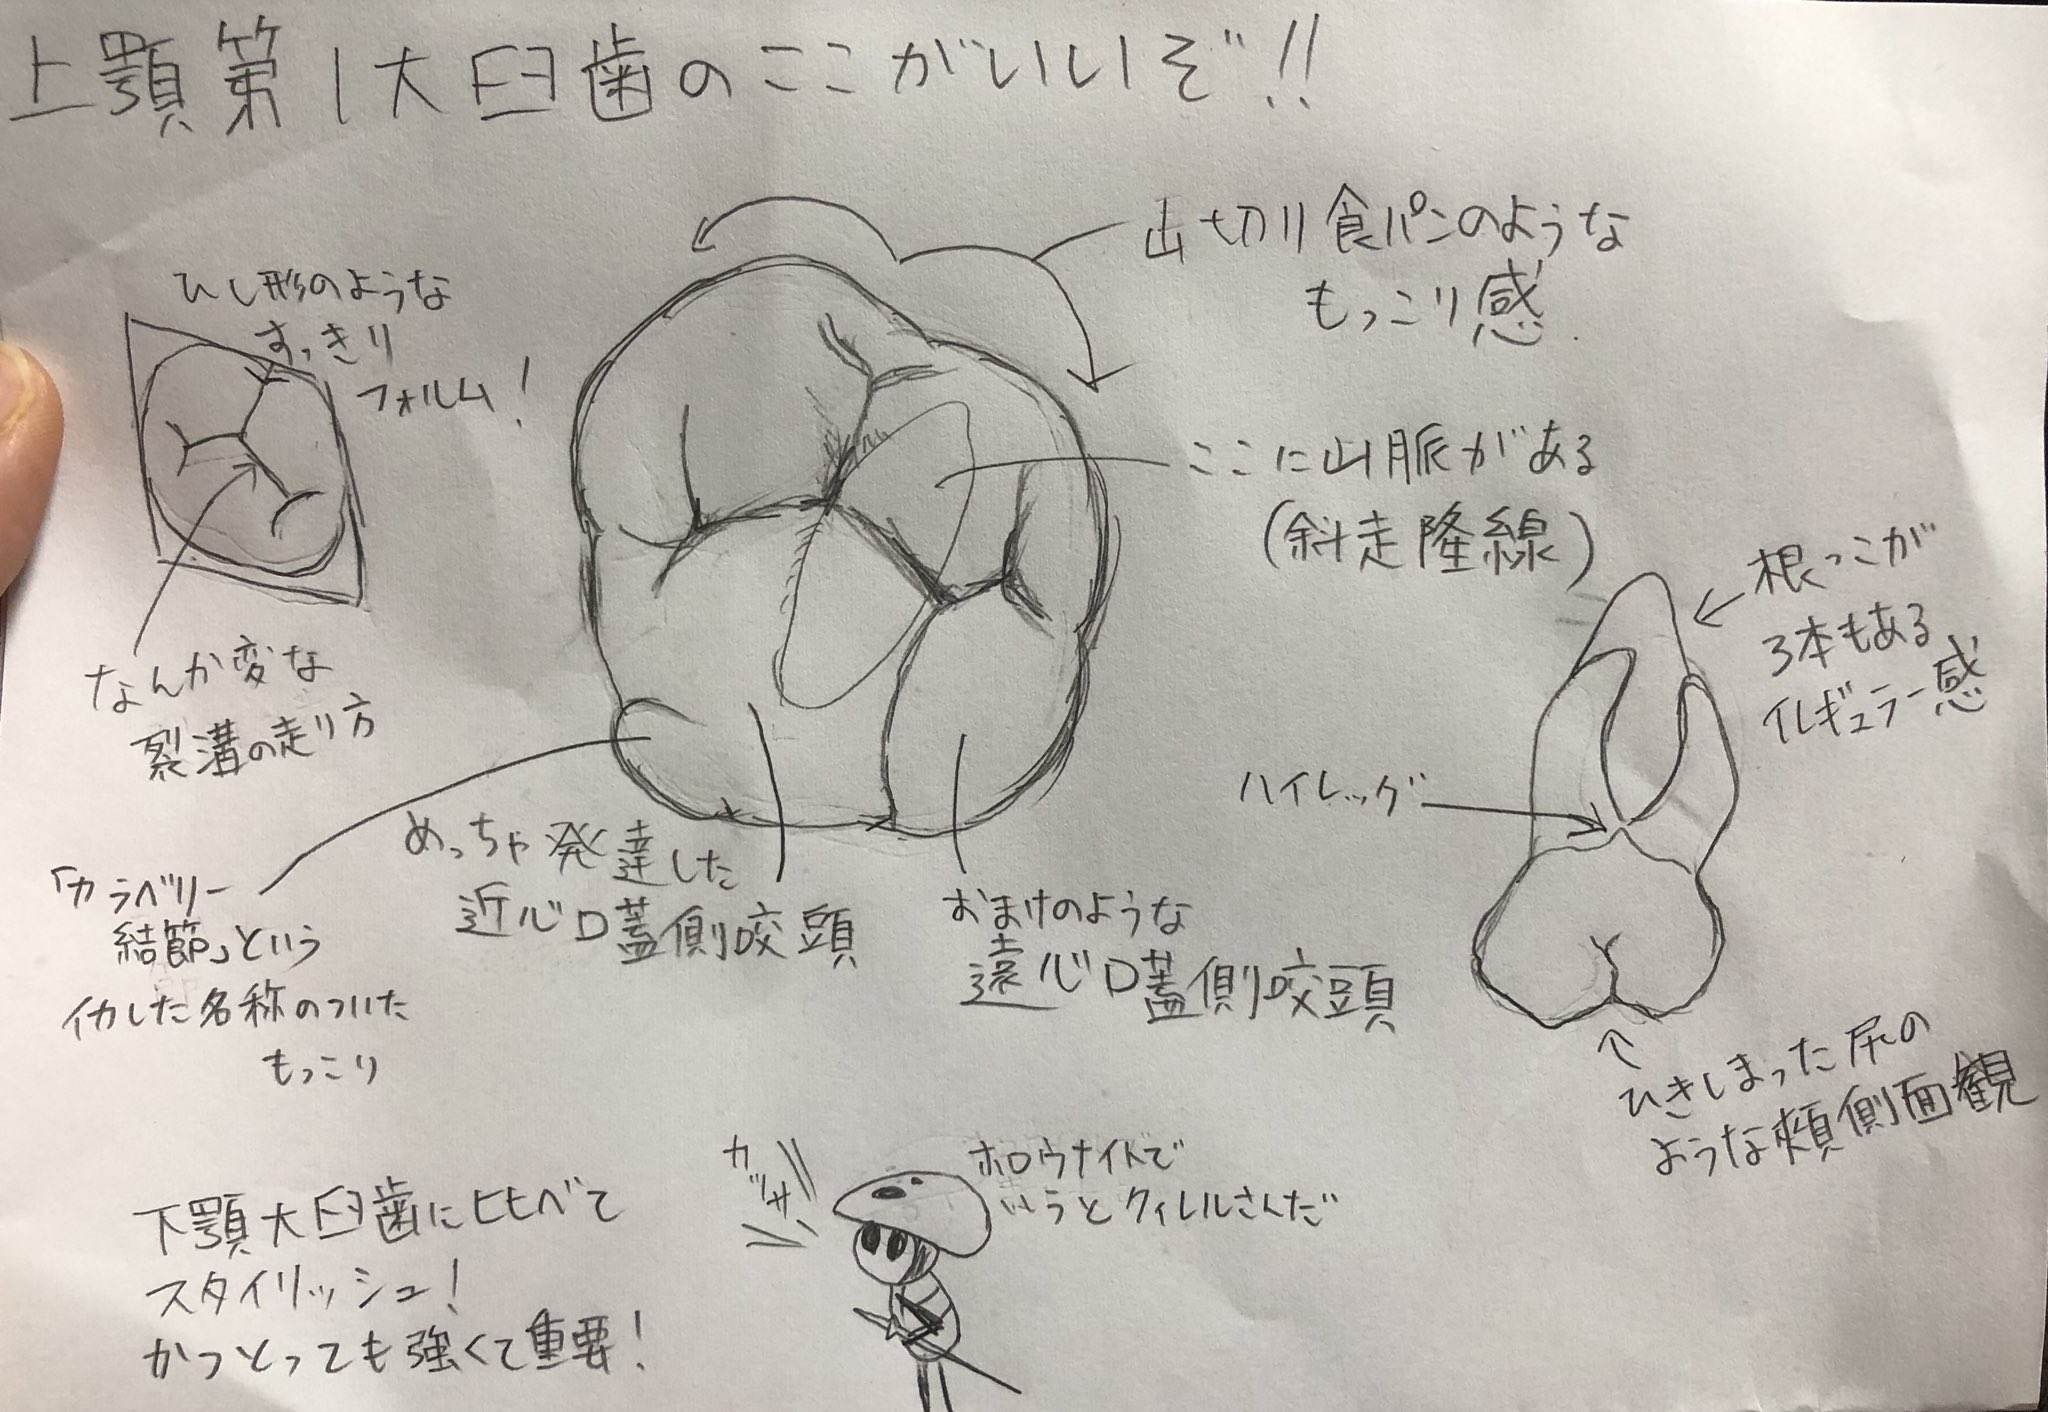 上顎第1大臼歯のここがいいぞ!!
山切り食パンのような
もっこり感
ひし形のような
すっきり
フォルム!
ここに山脈がある
(斜走隆線)
根っこが
3本もある
イレギュラー感
なんか変な
裂溝の走り方
ハイレッグ
「カラベリー
結節」という
イカした名称のついた
もっこり
めっちゃ発達した
近心口蓋側咬頭
おまけのような
遠心口蓋側咬頭
ひきしまった尻の
ような頬側面観
カッサ
ホロウナイトで
いうとクィレルさんだ
下顎大臼歯にヒヒべて
スタイリッシュ!
かつとっても強くて重要!